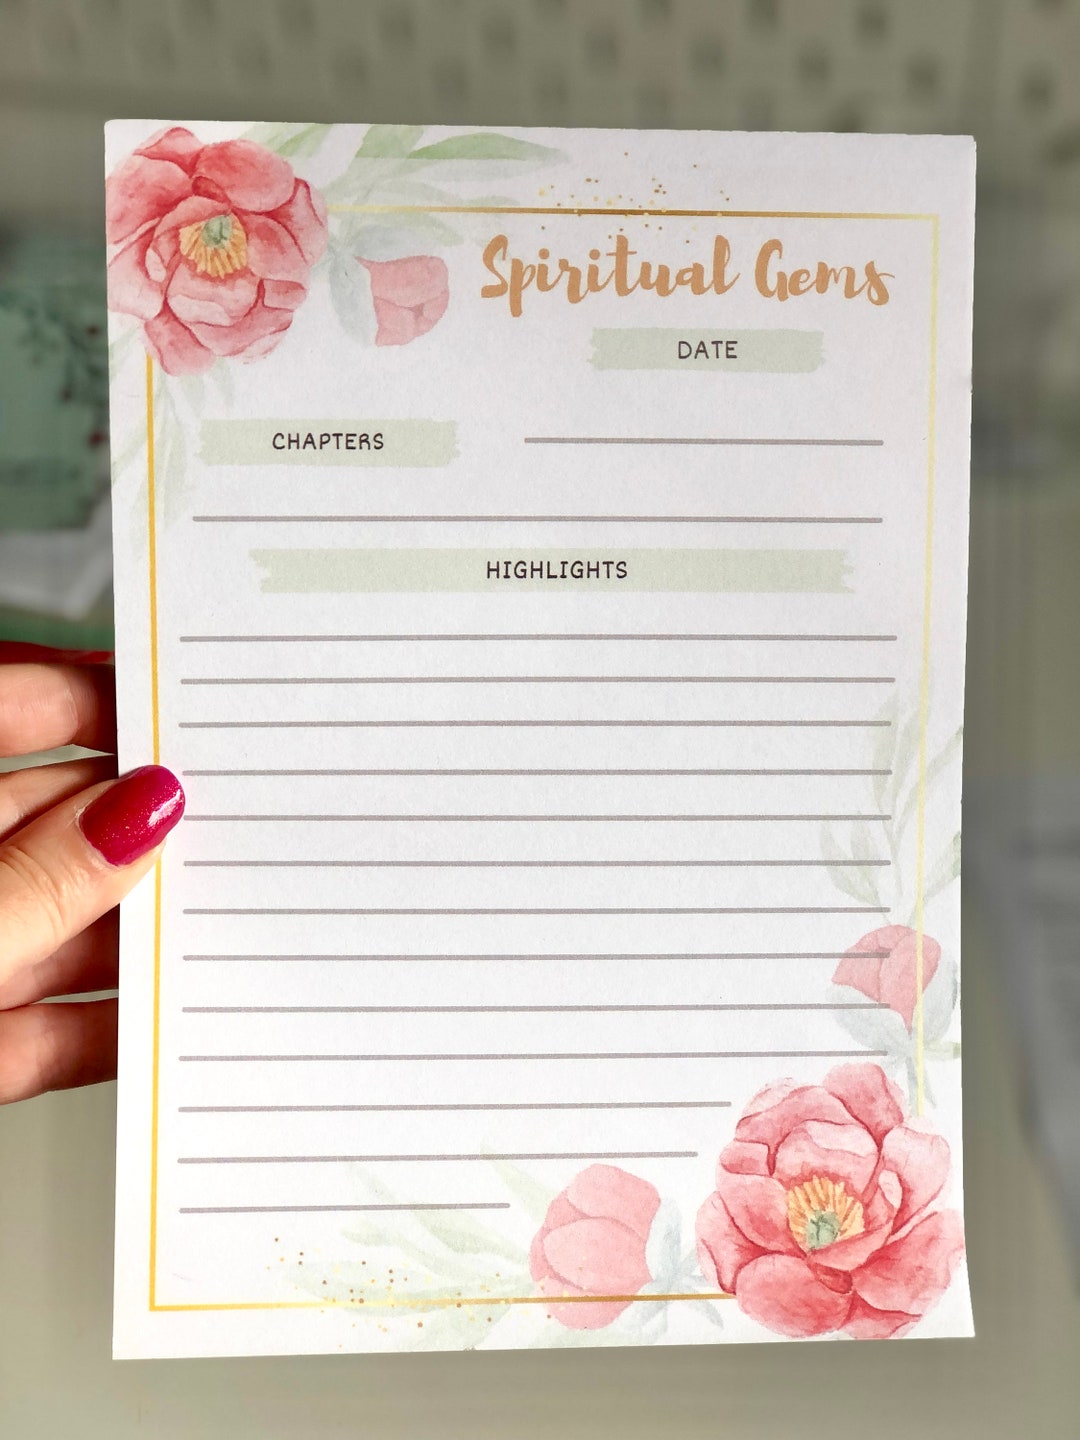 Spiritual Gems
DATE
CHAPTERS
HIGHLIGHTS